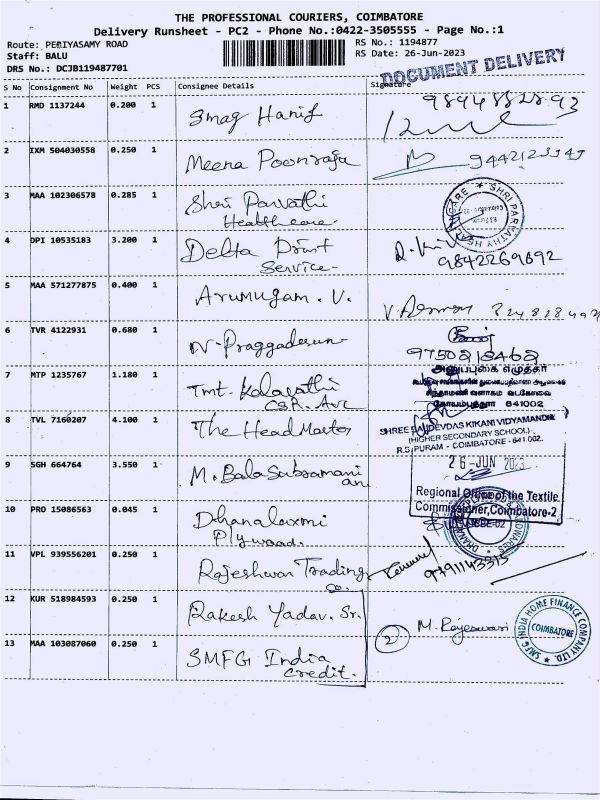 THE PROFESSIONAL COURIERS, COIMBATORE
Delivery Runsheet - PC2 - Phone No.:0422-3505555 - Page No.:1
Route: PERIYASAMY ROAD
RS No.: 1194877
Staff: BALU
RS Date: 26-Jun-2023
DRS No.: DCJB119487701
DOCUMENT DELIVERY
S No Consignment No Weight PCS Consignee Details Signature
1 RMD 1137244 0.200 1 Smag Hanif
9894882893
2 IXM 504030558 0.250 1 Meena Poonraja
3 MAA 102306578 0.285 1 Shri Parvathi
Healthcare.
SHRI PARVATHY HEALTHCARE
4 DPI 10535183 3.200 1 Delta Print
Service-
9842269692
5 MAA 571277875 0.400 1 Arumugam. V.
6 TVR 4122931 0.680 1
9750218462
அனுப்புகை எழுத்தர்
சிந்தாமணி வளாகம் வடகோவை
கோயம்புத்தூர் 641002
7 MTP 1235767 1.180 1 Tmt. Kalavathi
8 TVL 7160207 4.100 1 The HeadMaster
KIKANI VIDYAMANDIR
(HIGHER SECONDARY SCHOOL)
R.S. PURAM - COIMBATORE - 641 002.
9 SGH 664764 3.550 1 M. BalaSubramani
an
26-JUN 2023
Regional Office of the Textile
Commissioner, Coimbatore-2
10 PRO 15086563 0.045 1 Dhanalaxmi
Plywood.
11 VPL 939556201 0.250 1 Rajeshwari Trading
co.
9791143315
12 KUR 518984593 0.250 1 Rakesh Yadav. Sr.
2 M. Rajeswari
SMFG INDIA HOME FINANCE COMPANY LTD.
COIMBATORE
13 MAA 103087060 0.250 1 SMFG India
credit.